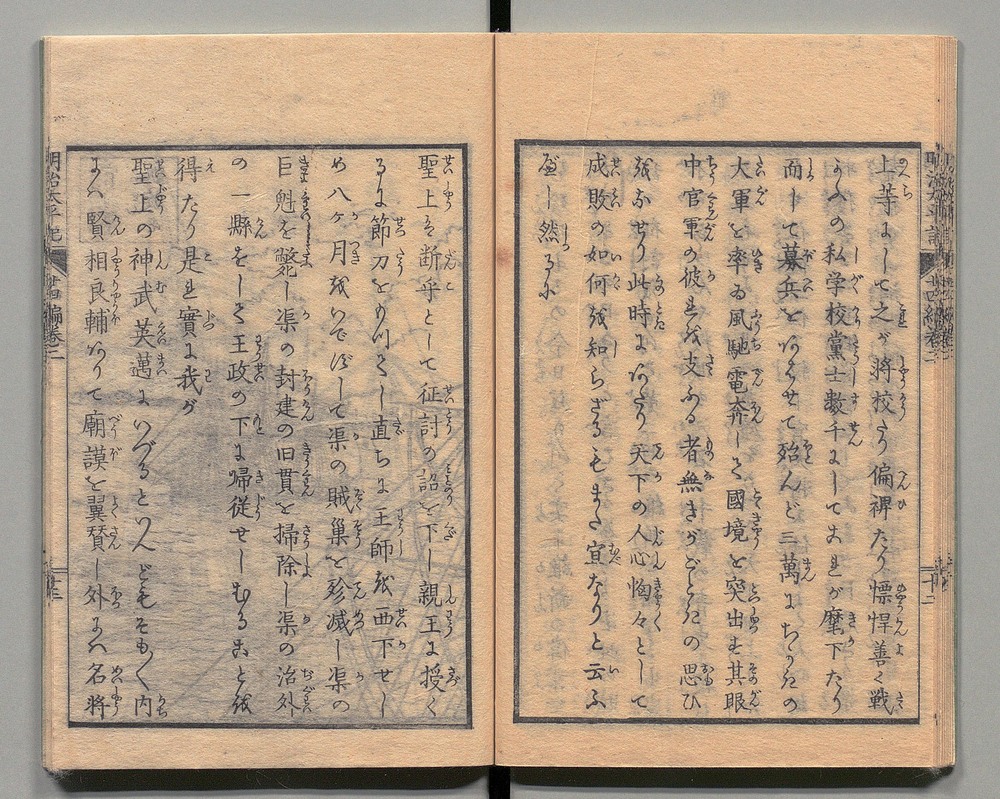 上等にして之が将校たり偏裨たり慓悍善く戦
ふの私学校黨士数千にして
而して募兵をあはせて殆んど三萬にちかきの
大軍を率ゐ風馳電奔して國境を突出す其眼
中官軍の彼れを支ふる者無きがごときの思ひ
をなせり此時にあたり天下の人心恟々として
成敗の如何を知らざるもまた宜なりと云ふ
べし然るに
聖上は断乎として征討の詔を下し親王に授く
るに節刀をもつてし直ちに王師を西下せし
め八ヶ月をいでずして渠の賊巣を殄滅し渠の
巨魁を斃し渠の封建の旧貫を掃除し渠の治外
の一縣をして王政の下に帰従せしむることを
得たり是れ實に我が
聖上の神武英邁にいづるといへどもそも〳〵内
には賢相良輔ありて廟謨を翼賛し外には名将
明治太平記
廿四編巻二
十二